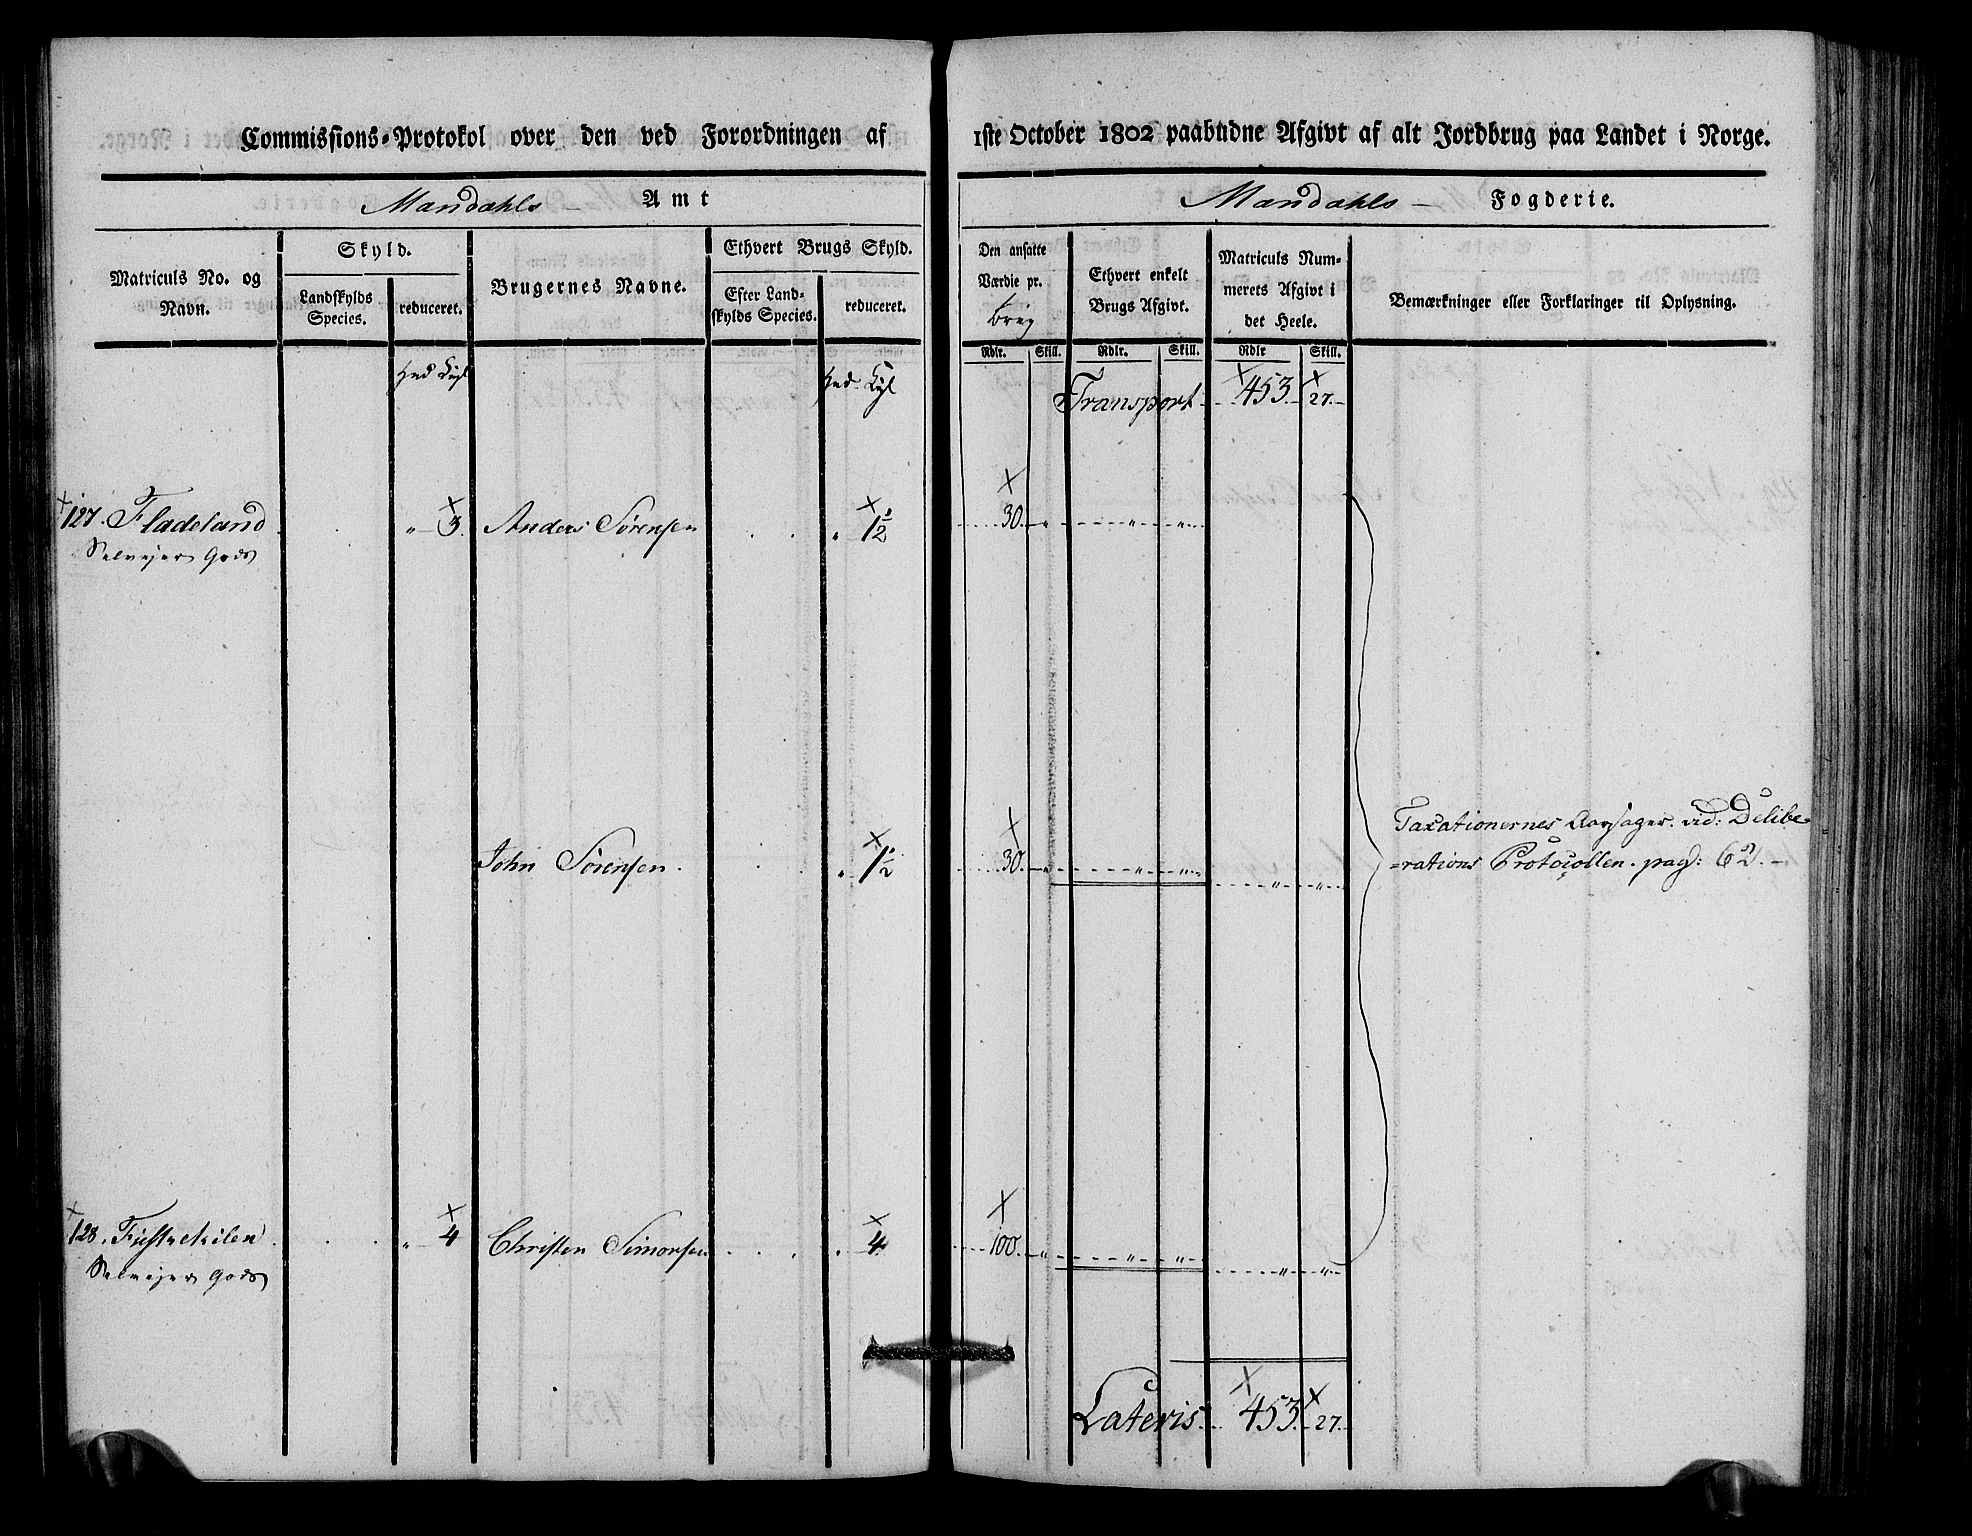 Commissions-Protokol over den ved Forordningen af 1ste October 1802 paabudne Afgivt af alt Jordbrug paa Landet i Norge.
Mandahls Amt
Mandahls Fogderie.
Matriculs No. og Navn.
Skyld.
Landskylds Species.
reduceret.
Brugernes Navne.
Ethvert Brugs Skyld.
Efter Landskylds Species.
reduceret.
Den ansatte Værdie pr.
Brug
Ethvert enkelt Brugs Afgivt.
Matriculs Nummerets Afgivt i det Heele.
Bemærkninger eller Forklaringer til Oplysning.
Rdlr. Skill. Rdlr. Skill. Rdlr Skill.
Hud Hud
Transport 453. 27.
127. Fladeland " 3. Anders Sørensen " 1½ 30. " " "
Selvejer Gods
John Sørensen. " 1½ 30. " " " " "
Taxationernes Aarsager. vid: Delibe
=rations Protocollen. pag: 62.
128. " 4 Christen Simonsen " 4. 100. " " " " "
Selvejer Gods
Lateris 453. 27.